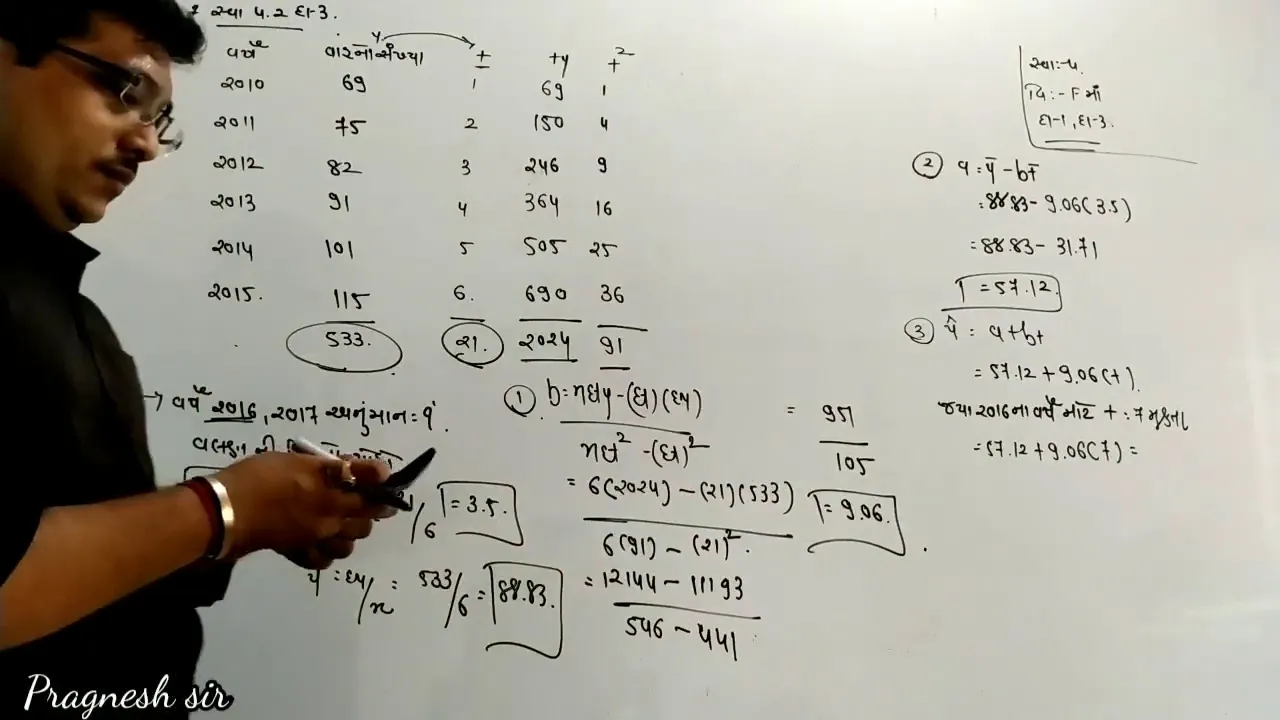 સ્વા ૫.૨ દા-3.
વર્ષ વારનોસંખ્યા y t ty t²
૨૦10 69 1 69 1
૨૦11 75 2 150 4
૨૦12 82 3 ૨46 9
૨૦13 91 4 364 16
૨૦14 101 5 505 25
૨૦15. 115 6. 690 36
533. ૨1. ૨૦૨4 91
→ વર્ષ ૨૦16, ૨૦17 અનુંમાન = ŷ.
/6 = 3.5.
ȳ = Σy/n = 533/6 = 88.83.
① b = nΣty - (Σt)(Σy)
nΣt² - (Σt)²
= 6(૨૦૨4) - (૨1)(533)
6(91) - (૨1)².
= 12144 - 11193
546 - 441
= 951
105
= 9.06.
સ્વા:-૫.
વિ:- F માં
દા-1, દા-3.
② a = ȳ - bt̄
= 88.83 - 9.06(3.5)
= 88.83 - 31.71
= 57.12.
③ ŷ = a+bt
= 57.12 + 9.06(t).
જ્યા ૨૦16ના વર્ષ માટે t = 7 મૂકતા
= 57.12 + 9.06(7) =
Pragnesh sir